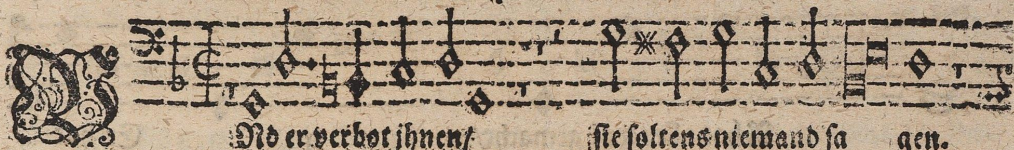 VNd er verbot jhnen/ sie soltens niemand sa gen.